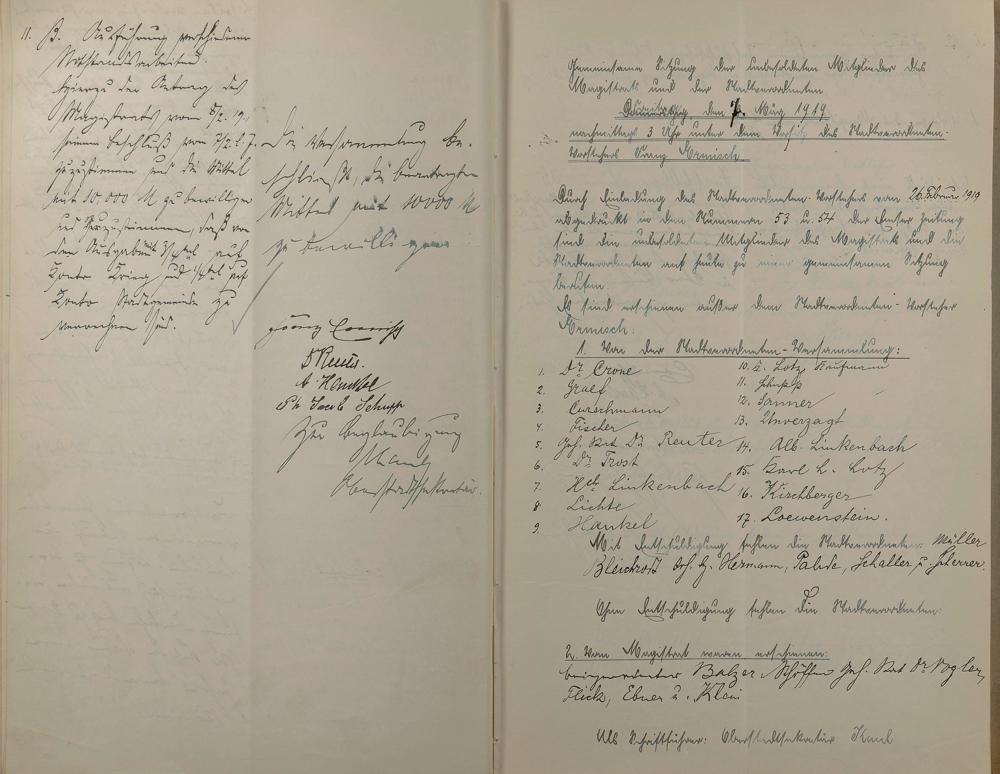 11. B. Ausführung verschiedener
Notstandsarbeiten.
Hierzu den Antrag des
Magistrats vom 8/2. 19,
seinem Beschluß vom 7/2. l. J.
zuzustimmen und die Mittel
mit 10 000 M zu bewilligen
und zuzustimmen, daß von
den Ausgaben auf
Konto Krieg und auf
Konto Stadtgemeinde zu
verrechnen sind.
Die Versammlung be-
schließt, die beantragten
Mittel mit 10000 M
zu bewilligen
Dr Reuter.
A. Hankel
Ph Jacob Schupp
Zur Beglaubigung
Kaul
Oberstadtsekretär.
Gemeinsame Sitzung der unbesoldeten Mitglieder des
Magistrats und der Stadtverordneten
Donnerstag, den März 1919
nachmittags 3 Uhr unter dem Vorsitz des Stadtverordneten-
Vorstehers Franz Ermisch.
Durch Einladung des Stadtverordneten-Vorstehers vom 26. Februar 1919
abgedruckt in den Nummern 53 u. 54 der Emser Zeitung
sind die unbesoldeten Mitglieder des Magistrats und die
Stadtverordneten auf heute zu einer gemeinsamen Sitzung
berufen.
Es sind erschienen außer dem Stadtverordneten-Vorsteher
Ermisch:
1. Von der Stadtverordneten-Versammlung:
1. Dr. Crone
2. Graef
3. Curschmann
4. Fischer
5. Geh. Rat Dr. Reuter
6. Dr. Trost
7. Hch. Linkenbach
8 Lichte
9. Hankel
10. Lotz, Kaufmann
11. Schupp
12. Sanner
13. Unverzagt
14. Alb. Linkenbach
15. Karl H. Lotz
16. Kirchberger
17. Loewenstein.
Mit Entschuldigung fehlen die Stadtverordneten: Müller
Bleichrodt, Hermann, Pabde, Schaller u. Scherrer.
Ohne Entschuldigung fehlen die Stadtverordneten:
2. Vom Magistrat waren erschienen:
Beigeordneter Balzer, Schöffen Geh. Rat Dr Vogler,
Flick, Ebner u. Klein
Als Schriftführer: Oberstadtsekretär Kaul